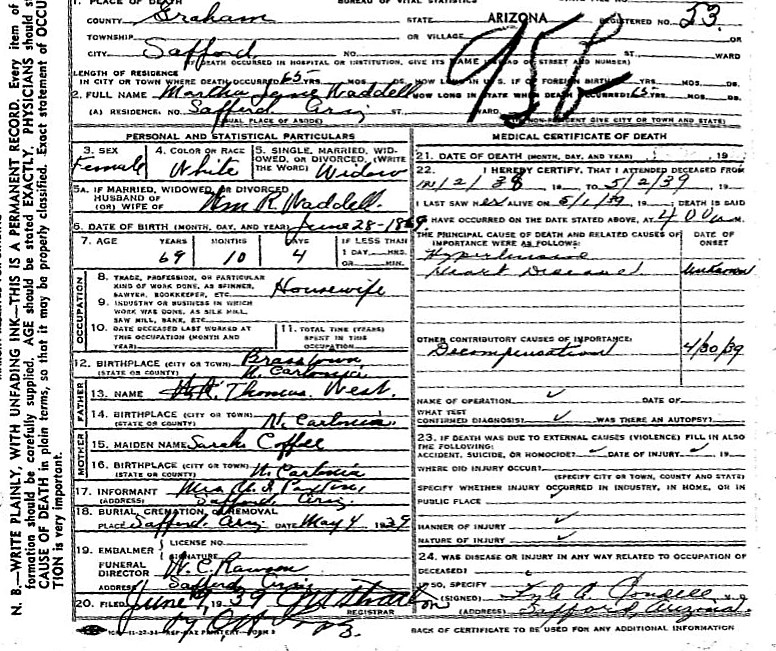 1. PLACE OF DEATH BUREAU OF VITAL STATISTICS
COUNTY Graham STATE ARIZONA REGISTERED NO. 53
TOWNSHIP OR VILLAGE OR
CITY Safford NO. ST. WARD
(IF DEATH OCCURRED IN HOSPITAL OR INSTITUTION, GIVE ITS NAME INSTEAD OF STREET AND NUMBER)
95b
LENGTH OF RESIDENCE
IN CITY OR TOWN WHERE DEATH OCCURRED 65 YRS. MOS. DS. HOW LONG IN U.S. IF OF FOREIGN BIRTH? YRS. MOS. DS.
2. FULL NAME Martha Jane Waddell HOW LONG IN STATE WHEN DEATH OCCURRED? 65 YRS. MOS. DS.
(A) RESIDENCE, NO. Safford Ariz ST. WARD
(USUAL PLACE OF ABODE) (IF NON-RESIDENT GIVE CITY OR TOWN AND STATE)
N. B.—WRITE PLAINLY, WITH UNFADING INK—THIS IS A PERMANENT RECORD. Every item of
formation should be carefully supplied. AGE should be stated EXACTLY. PHYSICIANS should st
CAUSE OF DEATH in plain terms, so that it may be properly classified. Exact statement of OCCU
TION is very important.
PERSONAL AND STATISTICAL PARTICULARS
3. SEX 4. COLOR OR RACE 5. SINGLE, MARRIED, WID-
OWED, OR DIVORCED, (WRITE
THE WORD)
Female White Widow
5A. IF MARRIED, WIDOWED, OR DIVORCED
HUSBAND OF
(OR) WIFE OF Wm R. Waddell.
6. DATE OF BIRTH (MONTH, DAY, AND YEAR) June 28-1869
7. AGE YEARS MONTHS DAYS IF LESS THAN
1 DAY HRS.
OR MIN.
69 10 4
OCCUPATION
8. TRADE, PROFESSION, OR PARTICULAR
KIND OF WORK DONE, AS SPINNER,
SAWYER, BOOKKEEPER, ETC. Housewife
9. INDUSTRY OR BUSINESS IN WHICH
WORK WAS DONE, AS SILK MILL,
SAW MILL, BANK, ETC.
10. DATE DECEASED LAST WORKED AT
THIS OCCUPATION (MONTH AND
YEAR)
11. TOTAL TIME (YEARS)
SPENT IN THIS
OCCUPATION
12. BIRTHPLACE (CITY OR TOWN) Brasstown
(STATE OR COUNTY) N. Carlonia
FATHER
13. NAME Thomas West
14. BIRTHPLACE (CITY OR TOWN)
(STATE OR COUNTY) N. Carlonia
MOTHER
15. MAIDEN NAME Sarah Coffee
16. BIRTHPLACE (CITY OR TOWN)
(STATE OR COUNTY) N. Carlonia
17. INFORMANT Mrs
(ADDRESS) Safford, Ariz.
18. BURIAL, CREMATION, OR REMOVAL
PLACE Safford Ariz DATE May 4 1939
19. EMBALMER LICENSE NO.
SIGNATURE
FUNERAL
DIRECTOR W. C. Rawson
ADDRESS Safford Ariz
20. FILED June 1, 1939
REGISTRAR
by
MEDICAL CERTIFICATE OF DEATH
21. DATE OF DEATH (MONTH, DAY, AND YEAR) , 19
22. I HEREBY CERTIFY, THAT I ATTENDED DECEASED FROM
12/2/38 19 TO 5/2/39 19
I LAST SAW her ALIVE ON 5/1/39 19 ; DEATH IS SAID
TO HAVE OCCURRED ON THE DATE STATED ABOVE, AT 4 00 A M.
THE PRINCIPAL CAUSE OF DEATH AND RELATED CAUSES OF
IMPORTANCE WERE AS FOLLOWS: DATE OF
ONSET
Hypertensive
Heart Disease Unknown
OTHER CONTRIBUTORY CAUSES OF IMPORTANCE:
Decompensation 4/30/39
NAME OF OPERATION DATE OF
WHAT TEST
CONFIRMED DIAGNOSIS? WAS THERE AN AUTOPSY?
23. IF DEATH WAS DUE TO EXTERNAL CAUSES (VIOLENCE) FILL IN ALSO
THE FOLLOWING:
ACCIDENT, SUICIDE, OR HOMICIDE? DATE OF INJURY 19
WHERE DID INJURY OCCUR?
(SPECIFY CITY OR TOWN, COUNTY AND STATE)
SPECIFY WHETHER INJURY OCCURRED IN INDUSTRY, IN HOME, OR IN
PUBLIC PLACE
MANNER OF INJURY
NATURE OF INJURY
24. WAS DISEASE OR INJURY IN ANY WAY RELATED TO OCCUPATION OF
DECEASED?
IF SO, SPECIFY
(SIGNED) Lyle A.
(ADDRESS) Safford, Arizona.
BACK OF CERTIFICATE TO BE USED FOR ANY ADDITIONAL INFORMATION